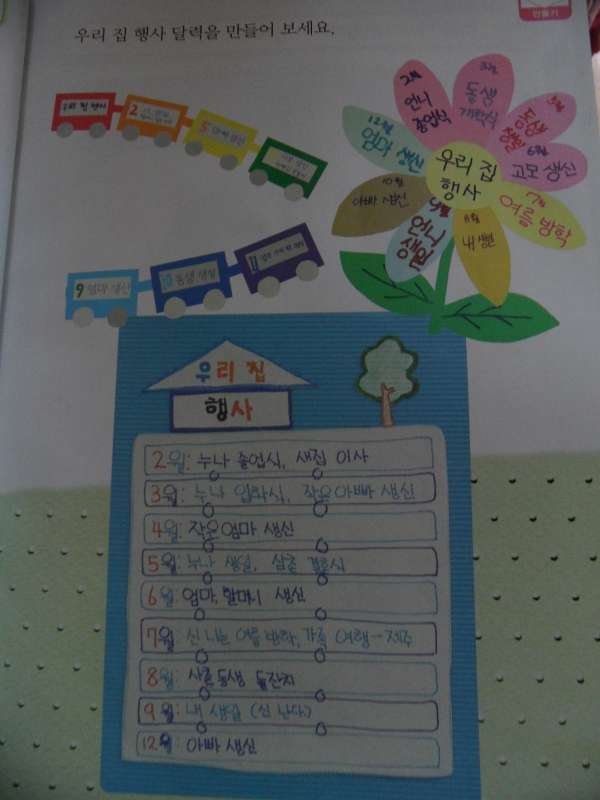 우리 집 행사 달력을 만들어 보세요.
만들기
우리 집 행사
2
5 아빠 생신
9 엄마 생신
10 동생 생일
11
우리 집
행사
2월
언니
졸업식
3월
동생
개학식
5월
동생
생일
6월
고모 생신
7월
여름 방학
8월
내 생일
9월
언니
생일
10월
아빠 생신
12월
엄마 생신
우리 집
행사
2월: 누나 졸업식, 새집 이사
3월: 누나 입학식, 작은아빠 생신
4월: 작은엄마 생신
5월: 누나 생일, 삼촌 결혼식
6월: 엄마, 할머니 생신
7월: 신나는 여름 방학, 가족 여행-제주
8월: 사촌동생 돌잔치
9월: 내 생일 (신 난다)
12월: 아빠 생신